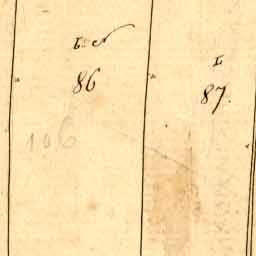 L
86
87.
106